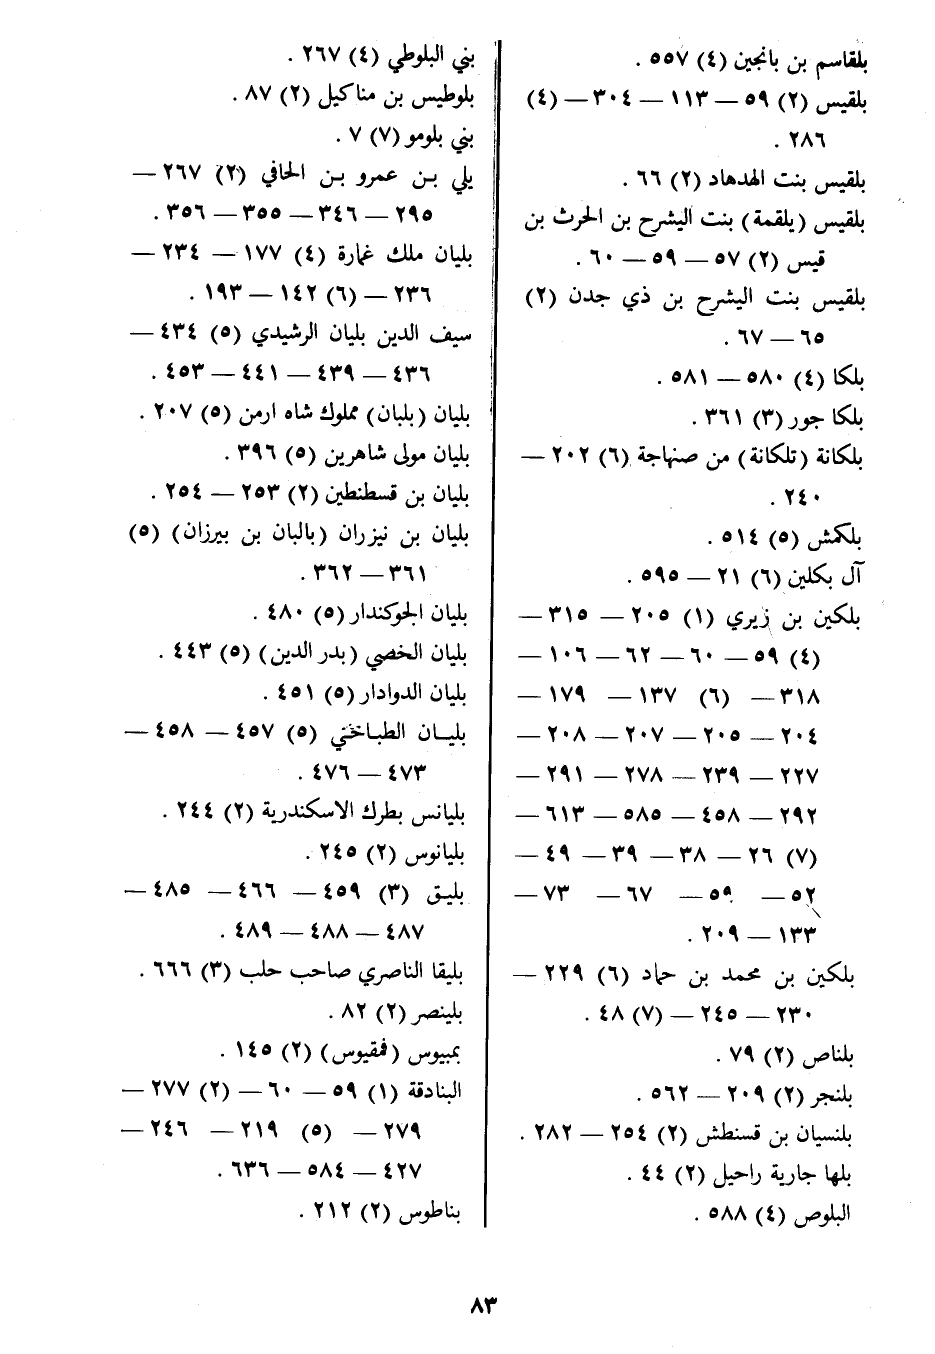 بلقاسم بن بانجين (٤) ٥٥٧ .
بلقيس (٢) ٥٩ — ١١٣ — ٣٠٤ — (٤)
٢٨٦ .
بلقيس بنت الهدهاد (٢) ٦٦ .
بلقيس (يلقمة) بنت اليشرح بن الحرث بن
قيس (٢) ٥٧ — ٥٩ — ٦٠ .
بلقيس بنت اليشرح بن ذي جدن (٢)
٦٥ — ٦٧ .
بلكا (٤) ٥٨٠ — ٥٨١ .
بلكا جور (٣) ٣٦١ .
بلكانة (تلكانة) من صنهاجة (٦) ٢٠٢ —
٢٤٠ .
بلكمش (٥) ٥١٤ .
آل بكلين (٦) ٢١ — ٥٩٥ .
بلكين بن زيري (١) ٢٠٥ — ٣١٥ —
(٤) ٥٩ — ٦٠ — ٦٢ — ١٠٦ —
٣١٨ — (٦) ١٣٧ — ١٧٩ —
٢٠٤ — ٢٠٥ — ٢٠٧ — ٢٠٨ —
٢٢٧ — ٢٣٩ — ٢٧٨ — ٢٩١ —
٢٩٢ — ٤٥٨ — ٥٨٥ — ٦١٣ —
(٧) ٢٦ — ٣٨ — ٣٩ — ٤٩ —
٥٢ — ٥٩ — ٦٧ — ٧٣ —
١٣٣ — ٢٠٩ .
بلكين بن محمد بن حماد (٦) ٢٢٩ —
٢٣٠ — ٢٤٥ — (٧) ٤٨ .
بلناص (٢) ٧٩ .
بلنجر (٢) ٢٠٩ — ٥٦٢ .
بلنسيان بن قسنطش (٢) ٢٥٤ — ٢٨٢ .
بلها جارية راحيل (٢) ٤٤ .
البلوص (٤) ٥٨٨ .
بني البلوطي (٤) ٢٦٧ .
بلوطيس بن مناكيل (٢) ٨٧ .
بني بلومو (٧) ٧ .
يلي بن عمرو بن الحافي (٢) ٢٦٧ —
٢٩٥ — ٣٤٦ — ٣٥٥ — ٣٥٦ .
بليان ملك غمارة (٤) ١٧٧ — ٢٣٤ —
٢٣٦ — (٦) ١٤٢ — ١٩٣ .
سيف الدين بليان الرشيدي (٥) ٤٣٤ —
٤٣٦ — ٤٣٩ — ٤٤١ — ٤٥٣ .
بليان (بلبان) مملوك شاه ارمن (٥) ٢٠٧ .
بليان مولى شاهرين (٥) ٣٩٦ .
بليان بن قسطنطين (٢) ٢٥٣ — ٢٥٤ .
بليان بن نيزران (بالبان بن بيرزان) (٥)
٣٦١ — ٣٦٢ .
بليان الجوكندار (٥) ٤٨٠ .
بليان الخصي (بدر الدين) (٥) ٤٤٣ .
بليان الدوادار (٥) ٤٥١ .
بليان الطباخي (٥) ٤٥٧ — ٤٥٨ —
٤٧٣ — ٤٧٦ .
بليانس بطرك الاسكندرية (٢) ٢٤٤ .
بليانوس (٢) ٢٤٥ .
بليق (٣) ٤٥٩ — ٤٦٦ — ٤٨٥ —
٤٨٧ — ٤٨٨ — ٤٨٩ .
بليقا الناصري صاحب حلب (٣) ٦٦٦ .
بلينصر (٢) ٨٢ .
بمبيوس (فمقيوس) (٢) ١٤٥ .
البنادقة (١) ٥٩ — ٦٠ — (٢) ٢٧٧ —
٢٧٩ — (٥) ٢١٩ — ٢٤٦ —
٤٢٧ — ٥٨٤ — ٦٣٦ .
بناطوس (٢) ٢١٢ .
٨٣